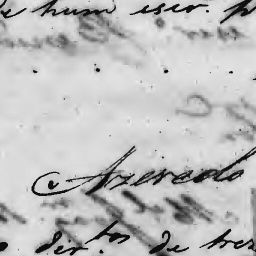 e hum escr. p
. . . .
Azeredo
dir.tos de trez